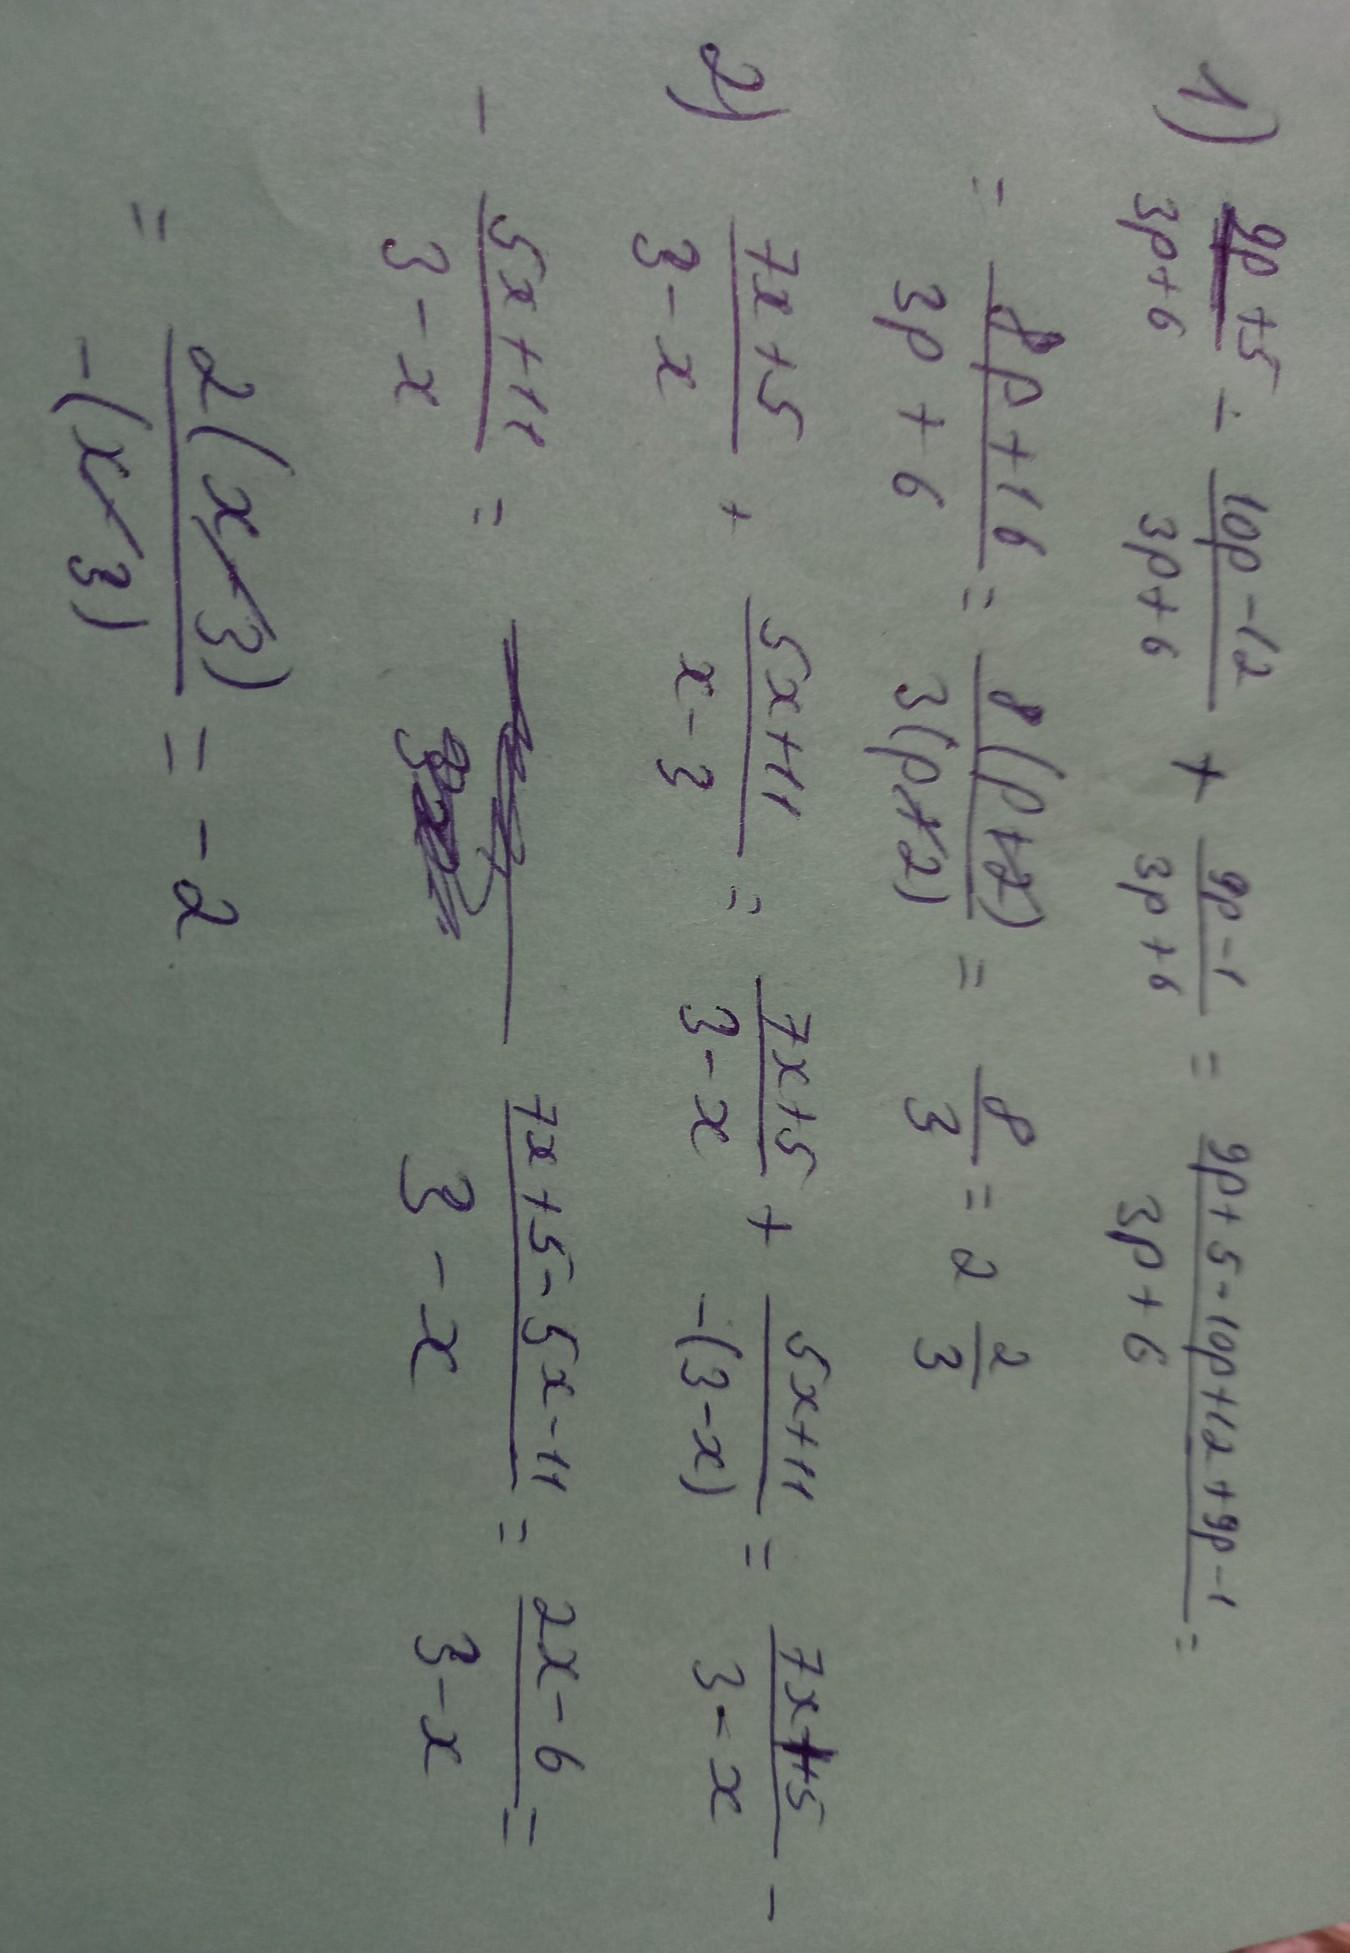 1) (9p+5)/(3p+6) - (10p-12)/(3p+6) + (9p-1)/(3p+6) = (9p+5-10p+12+9p-1)/(3p+6) =
= (8p+16)/(3p+6) = 8(p+2)/3(p+2) = 8/3 = 2 2/3
2) (7x+5)/(3-x) + (5x+11)/(x-3) = (7x+5)/(3-x) + (5x+11)/-(3-x) = (7x+5)/(3-x) -
- (5x+11)/(3-x) = (7x+5-5x-11)/(3-x) = (2x-6)/(3-x) =
= 2(x-3)/-(x-3) = -2